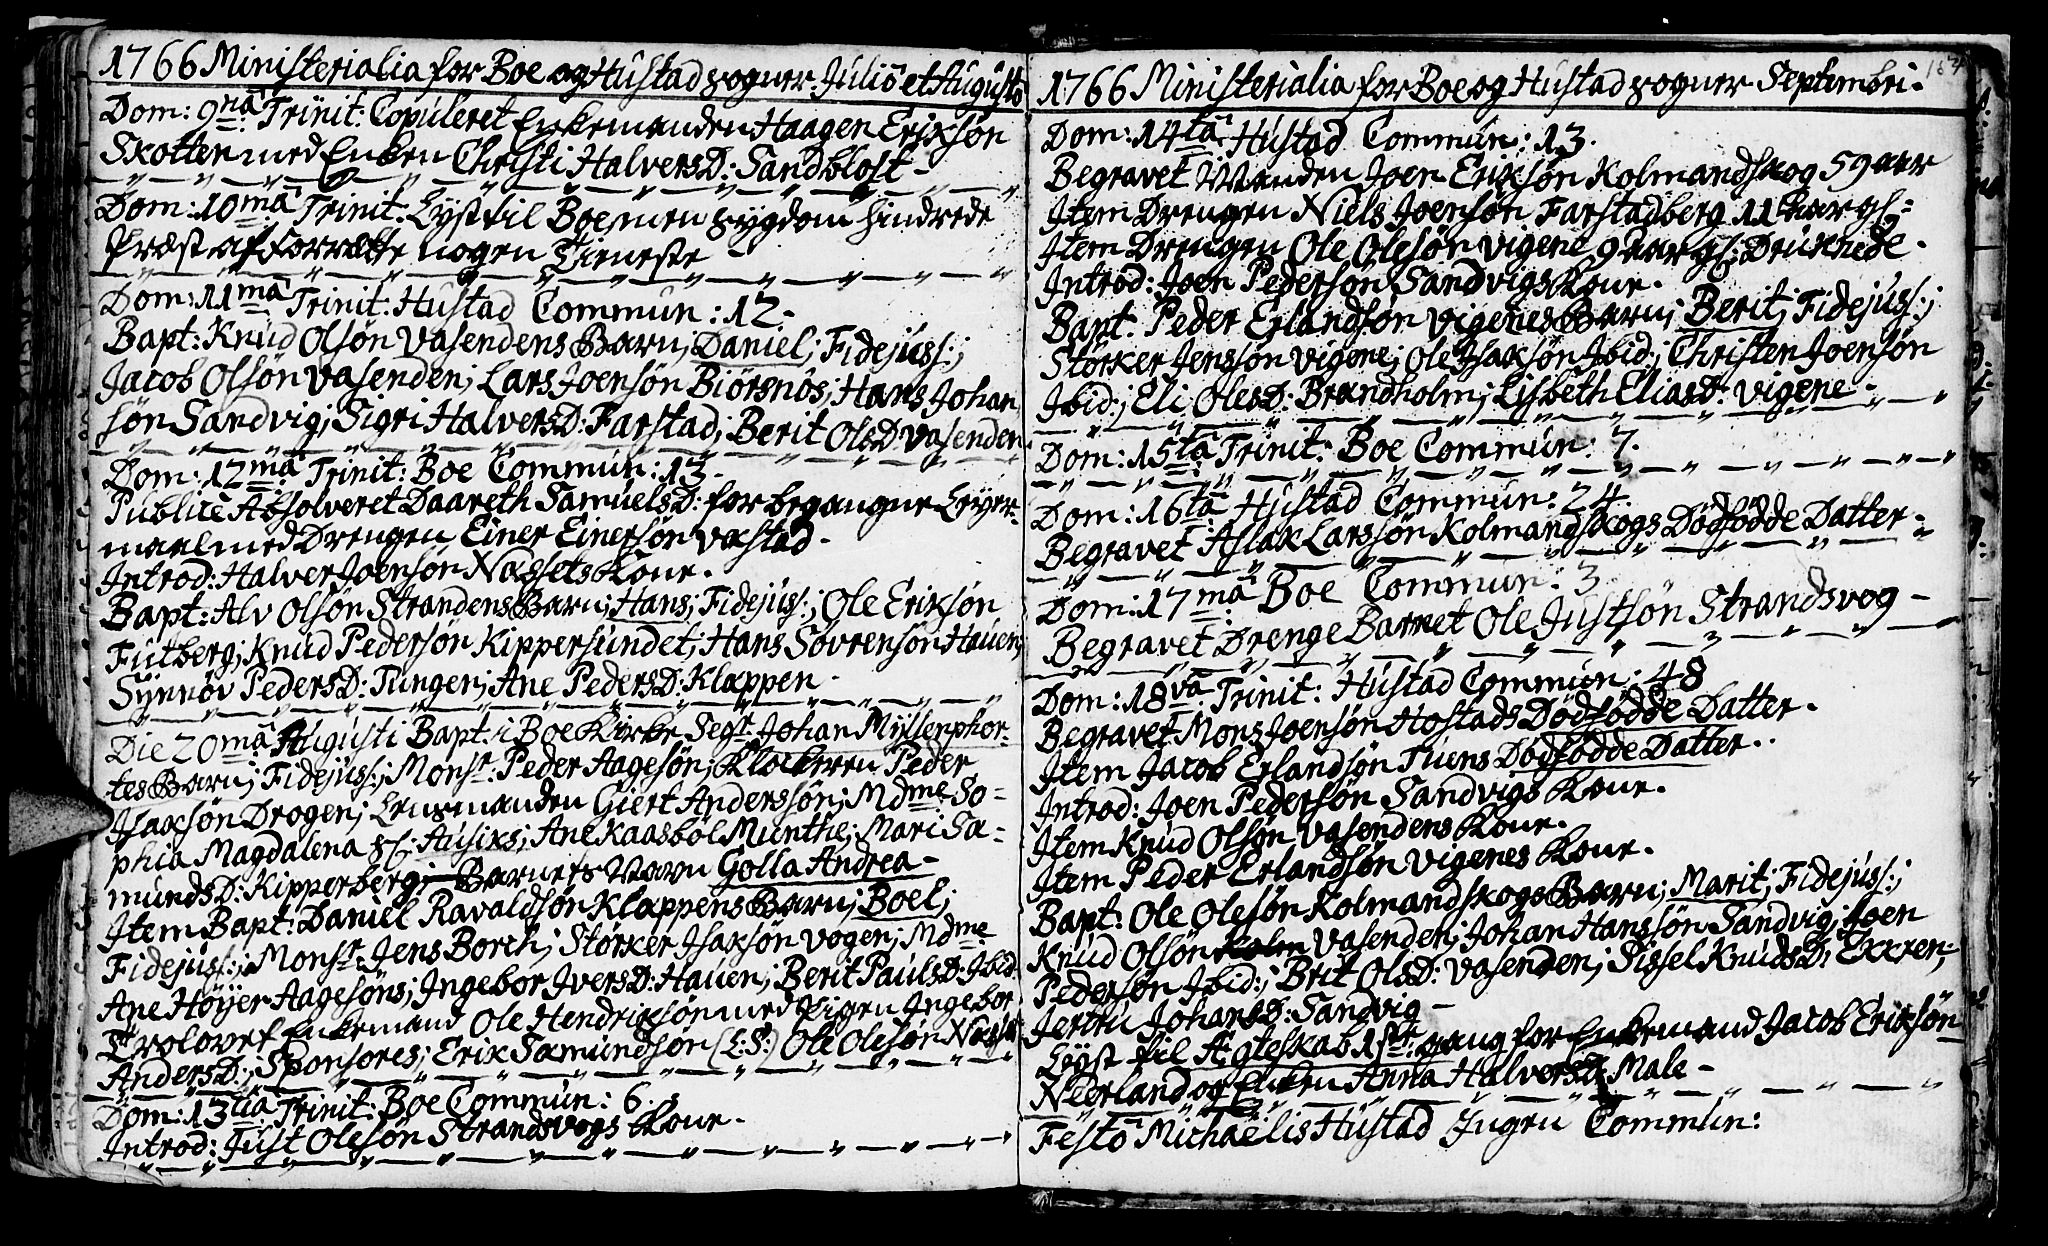 1766 Ministerialia for Boe og Hustad sogner Julio et Augusto
Dom: 9na Trinit: Copuleret Enkemanden Haagen Eriksøn
Skotten med Enken Christi HalversD: Sandblost -
Dom: 10ma Trinit: Lyst til Boe, men sygdom hindrede
Præst af forrætte nogen Tieneste
Dom: 11ma Trinit: Hustad Commun: 12.
Bapt: Knud Olsøn Vasendens Barn; Daniel; Fidejuss:;
Jacob Olsøn Vasenden; Lars Joensøn Biørsnøs; Hans Johan
søn Sandvig; Sigri HalversD: Farstad; Berit OlsD Vasenden
Dom: 12ma Trinit: Boe Commun: 13.
Publice Absolveret Daareth SamuelsD: for begangne Leyer-
maal med Drengen Einer Einersøn Vastad.
Introd: Halver Joensøn Næssets Kone.
Bapt: Alv Olsøn Strandens Barn; Hans; Fidejuss:; Ole Eriksøn
Futberg; Knud Pedersøn Kippersundet; Hans Søvrensøn Hauen;
Synnøv PedersD: Tungen; Ane PedersD: Klappen.
Die 20ma Augusti Bapt: i Boe Kirke Segr. Johan Myllenphor-
tes Barn; Fidejuss:; Monsr: Peder Aagesøn; Klockeren Peder
Isaksøn Drogen; Lensmanden Giert Anderssøn; Mdme So-
phia Magdalena sl: Ausiks; Ane Kaasbøl Munthe; Mari Sa-
mundsD: Kipperberg; Barnets Navn Golla Andrea -
Item Bapt: Daniel Ravaldsøn Klappens Barn; Boel;
Fidejuss:; Monsr. Jens Borch; Størker Isaksøn Vogen; Mdme
Ane Høyer Aagesøns; Ingebor IversD: Hauen; Berit PaulsD: Ibid:
Trolovet Enkemand Ole Hendriksøn med Pigen Ingebor
AndersD:; Sponsores; Erik Samundsøn (L:S:) Ole Olesøn Næsset
Dom: 13tia Trinit: Boe Commun: 6.
Introd: Just Olesøn Strandsvogs Kone.
1766 Ministerialia for Boe og Hustad sogner Septembri.
Dom: 14ta Hustad Commun: 13.
Begravet Manden Joen Eriksøn Kolmandskog 59 aar
Item Drengen Niels Joensøn Farstadberg 11 aar gl:
Item Drengen Ole Olesøn Vigene 9 aar gl: Druknede.
Introd: Joen Pedersøn Sandvigs Kone.
Bapt: Peder Erlandsøn Vigenes Barn; Berit; Fidejuss:;
Størker Jenssøn Vigene; Ole Isaksøn Ibid:; Christen Joensøn
Ibid:; Eli OlesD: Brandholm; Lisbeth EliasD: Vigene -
Dom: 15ta Trinit: Boe Commun: 7.
Dom: 16ta Hustad Commun: 24.
Begravet Aslak Larssøn Kolmandskogs Dødfødde Datter.
Dom: 17ma Boe Commun: 3
Begravet Drenge Barnet Ole Justsøn Strandsvog -
Dom: 18va Trinit: Hustad Commun: 48
Begravet Mons Joensøn Hostads Dødfødde Datter.
Item Jacob Erlandsøn Tuens Dødfødde Datter.
Introd: Joen Pedersøn Sandvigs Kone.
Item Knud Olsøn Vasendens Kone.
Item Peder Erlandsøn Vigenes Kone.
Bapt: Ole Olesøn Kolmandskogs Barn; Marit; Fidejuss:;
Knud Olsøn Vasenden; Johan Hanssøn Sandvig; Joen
Pedersøn Ibid:; Brit OlsD: Vasenden; Sissel KnudsD: Exren;
Jertru JohansD: Sandvig -
Lyst til Ægteskab 1ste gang for Enkemand Jacob Eriksøn
Neerland og Enken Anna HalversD: Male -
Festo Michaëlis Hustad Ingen Commun: